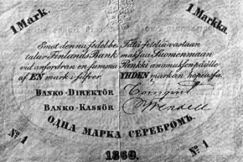 1 Mark. 1 Markka.
Emot denna sedel be- Tätä seteliä vastaan
talar Finlands Bank maksaa Suomenmaan
vid anfordran en summa Pankki anomuksen päälle
af EN mark i silfver YHDEN markan hopeassa.
BANKO-DIREKTÖR
BANKO-KASSÖR
ОДНА МАРКА СЕРЕБРОМЪ.
№ 1 1860. № 1